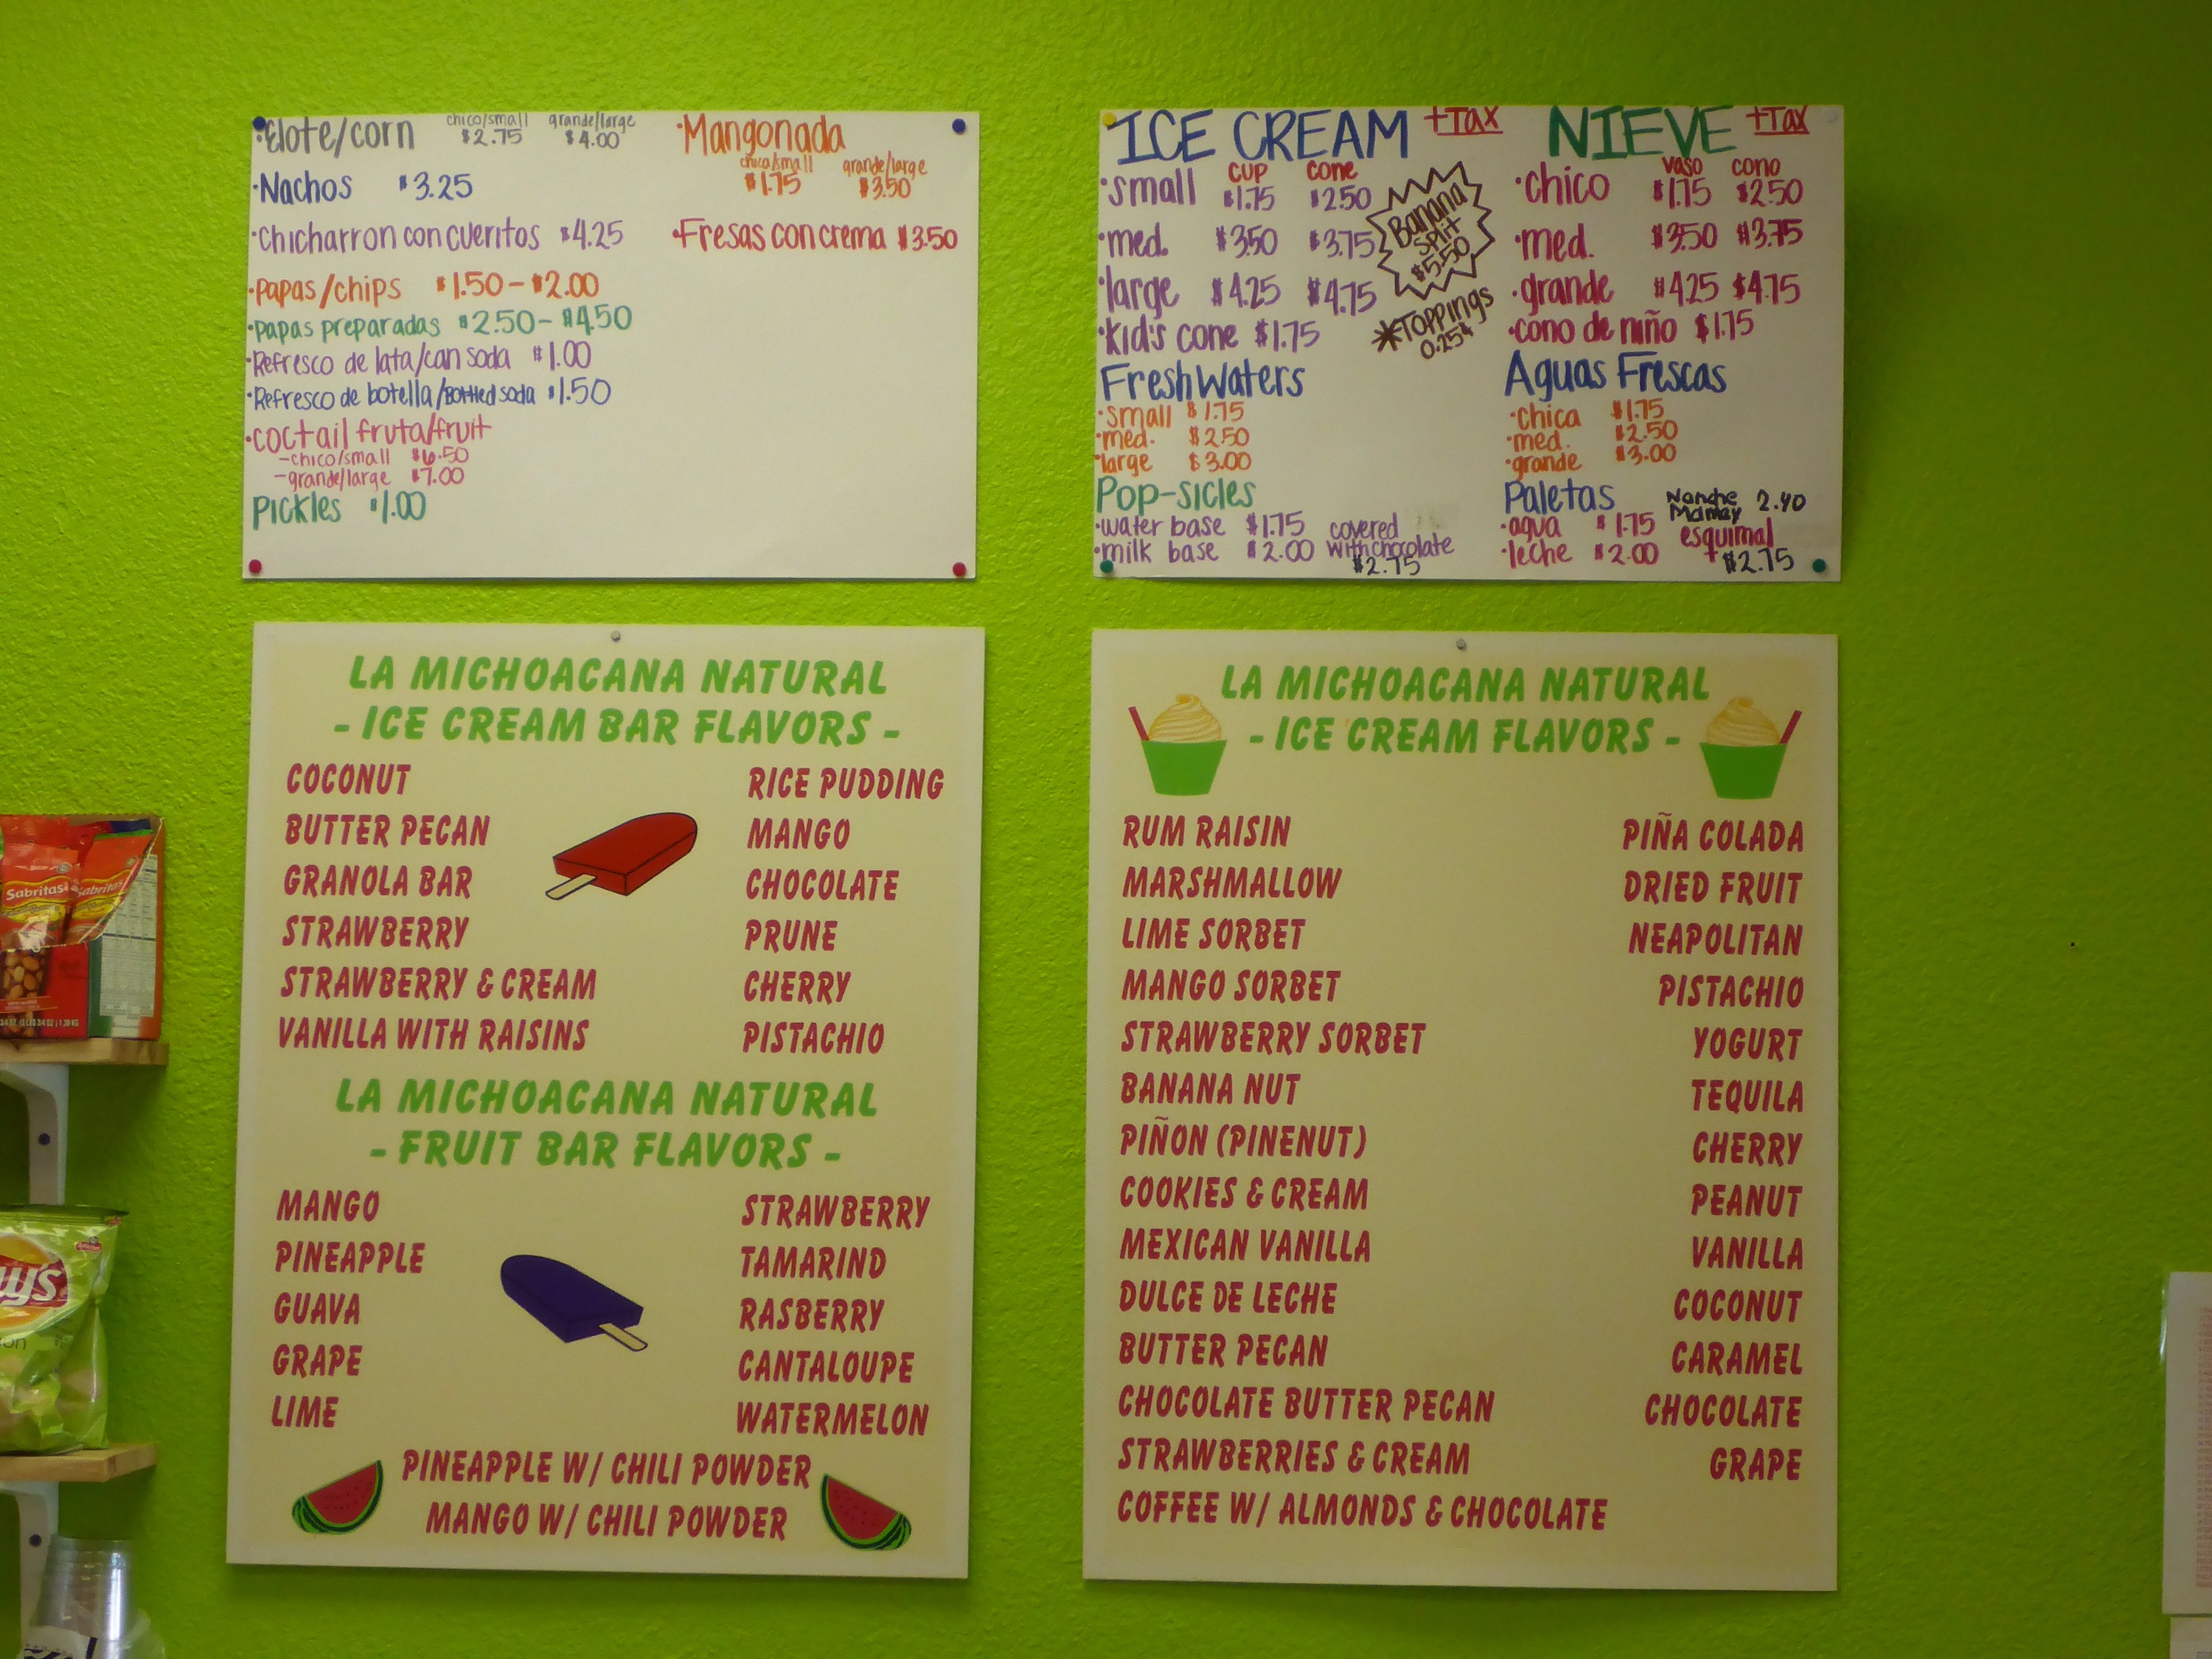 ·Elote/corn chico/small $2.75 grande/large $4.00
·Nachos $3.25
·Chicharron con cueritos $4.25
·Papas/chips $1.50-$2.00
·Papas preparadas $2.50-$4.50
·Refresco de lata/can soda $1.00
·Refresco de botella/Bottled soda $1.50
·coctail fruta/fruit
-chico/small $6.50
-grande/large $7.00
Pickles $1.00
·Mangonada
chica/small grande/large
$1.75 $3.50
·Fresas con crema $3.50
ICE CREAM +Tax
cup cone
·small $1.75 $2.50
·med. $3.50 $3.75
·large $4.25 $4.75
·kid's cone $1.75
Banana
Split
$5.50
*Toppings
0.25¢
Fresh Waters
·small $1.75
·med. $2.50
·large $3.00
Pop-sicles
·water base $1.75
·milk base $2.00
covered
with chocolate
$2.75
NIEVE +Tax
vaso cono
·chico $1.75 $2.50
·med. $3.50 $3.75
·grande $4.25 $4.75
·cono de niño $1.75
Aguas Frescas
·chica $1.75
·med. $2.50
·grande $3.00
Paletas
·agua $1.75
·leche $2.00
Nanche
Mamey 2.40
esquimal
$2.75
LA MICHOACANA NATURAL
- ICE CREAM BAR FLAVORS -
COCONUT
BUTTER PECAN
GRANOLA BAR
STRAWBERRY
STRAWBERRY & CREAM
VANILLA WITH RAISINS
RICE PUDDING
MANGO
CHOCOLATE
PRUNE
CHERRY
PISTACHIO
LA MICHOACANA NATURAL
- FRUIT BAR FLAVORS -
MANGO
PINEAPPLE
GUAVA
GRAPE
LIME
STRAWBERRY
TAMARIND
RASBERRY
CANTALOUPE
WATERMELON
PINEAPPLE W/ CHILI POWDER
MANGO W/ CHILI POWDER
LA MICHOACANA NATURAL
- ICE CREAM FLAVORS -
RUM RAISIN
MARSHMALLOW
LIME SORBET
MANGO SORBET
STRAWBERRY SORBET
BANANA NUT
PIÑON (PINENUT)
COOKIES & CREAM
MEXICAN VANILLA
DULCE DE LECHE
BUTTER PECAN
CHOCOLATE BUTTER PECAN
STRAWBERRIES & CREAM
COFFEE W/ ALMONDS & CHOCOLATE
PIÑA COLADA
DRIED FRUIT
NEAPOLITAN
PISTACHIO
YOGURT
TEQUILA
CHERRY
PEANUT
VANILLA
COCONUT
CARAMEL
CHOCOLATE
GRAPE
Sabritas
Sabritas